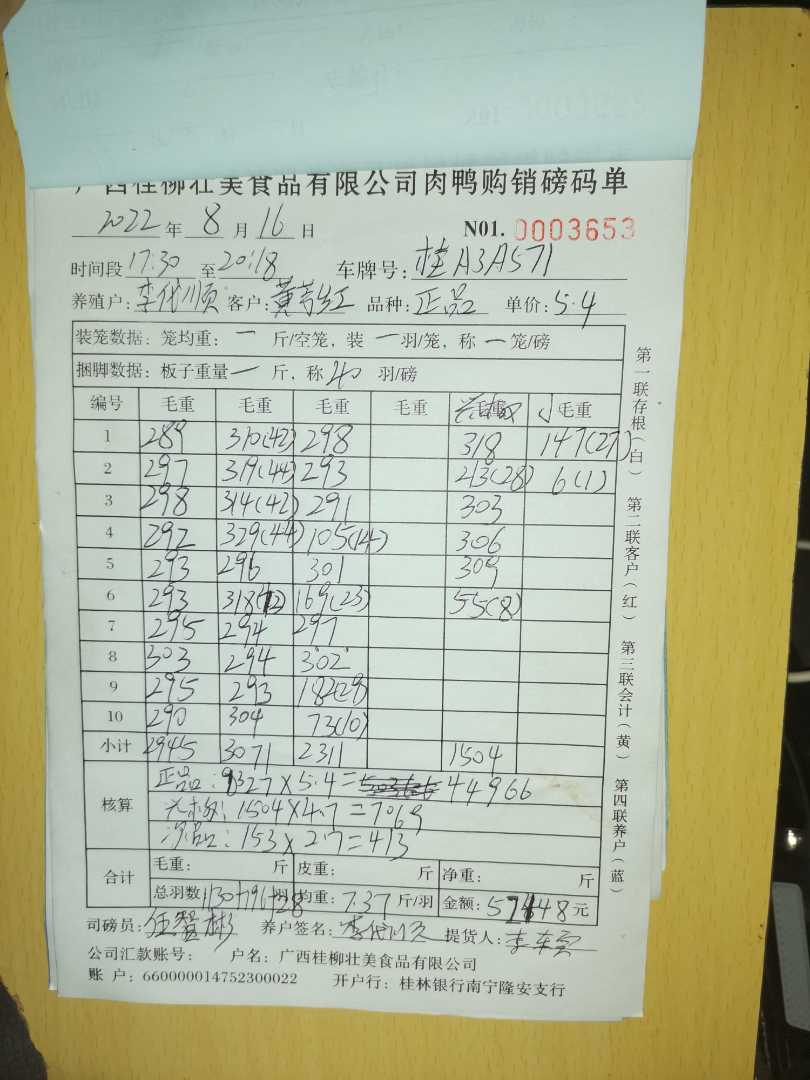 广西桂柳壮美食品有限公司肉鸭购销磅码单
2022年 8 月 16 日 N01. 0003653
时间段 17:30 至 20:18 车牌号: 桂A3A571
养殖户: 李代顺 客户: 黄 红 品种: 正品 单价: 5.4
装笼数据: 笼均重: 一 斤/空笼, 装 一 羽/笼, 称 一 笼/磅
捆脚数据: 板子重量 一 斤, 称 40 羽/磅
编号 毛重 毛重 毛重 毛重 毛重 小毛重
1 289 310(42) 298 318 147(27)
2 297 319(44) 293 213(28) 6(1)
3 298 314(42) 291 303
4 292 329(44) 105(14) 306
5 293 296 301 309
6 293 318(42) 169(23) 55(8)
7 295 294 297
8 303 294 302
9 295 293 182(28)
10 290 304 73(10)
小计 2945 3071 2311 1504
核算
正品: 8327×5.4= 44966
1504×4.7=7069
153×2.7=413
合计 毛重: 斤 皮重: 斤 净重: 斤
总羽数 1130+196+28 羽 均重: 7.37 斤/羽 金额: 57448 元
司磅员: 任 彬 养户签名: 李代顺 提货人: 李
公司汇款账号: 户名: 广西桂柳壮美食品有限公司
账 户: 660000014752300022 开户行: 桂林银行南宁隆安支行
第一联存根(白) 第二联客户(红) 第三联会计(黄) 第四联养户(蓝)